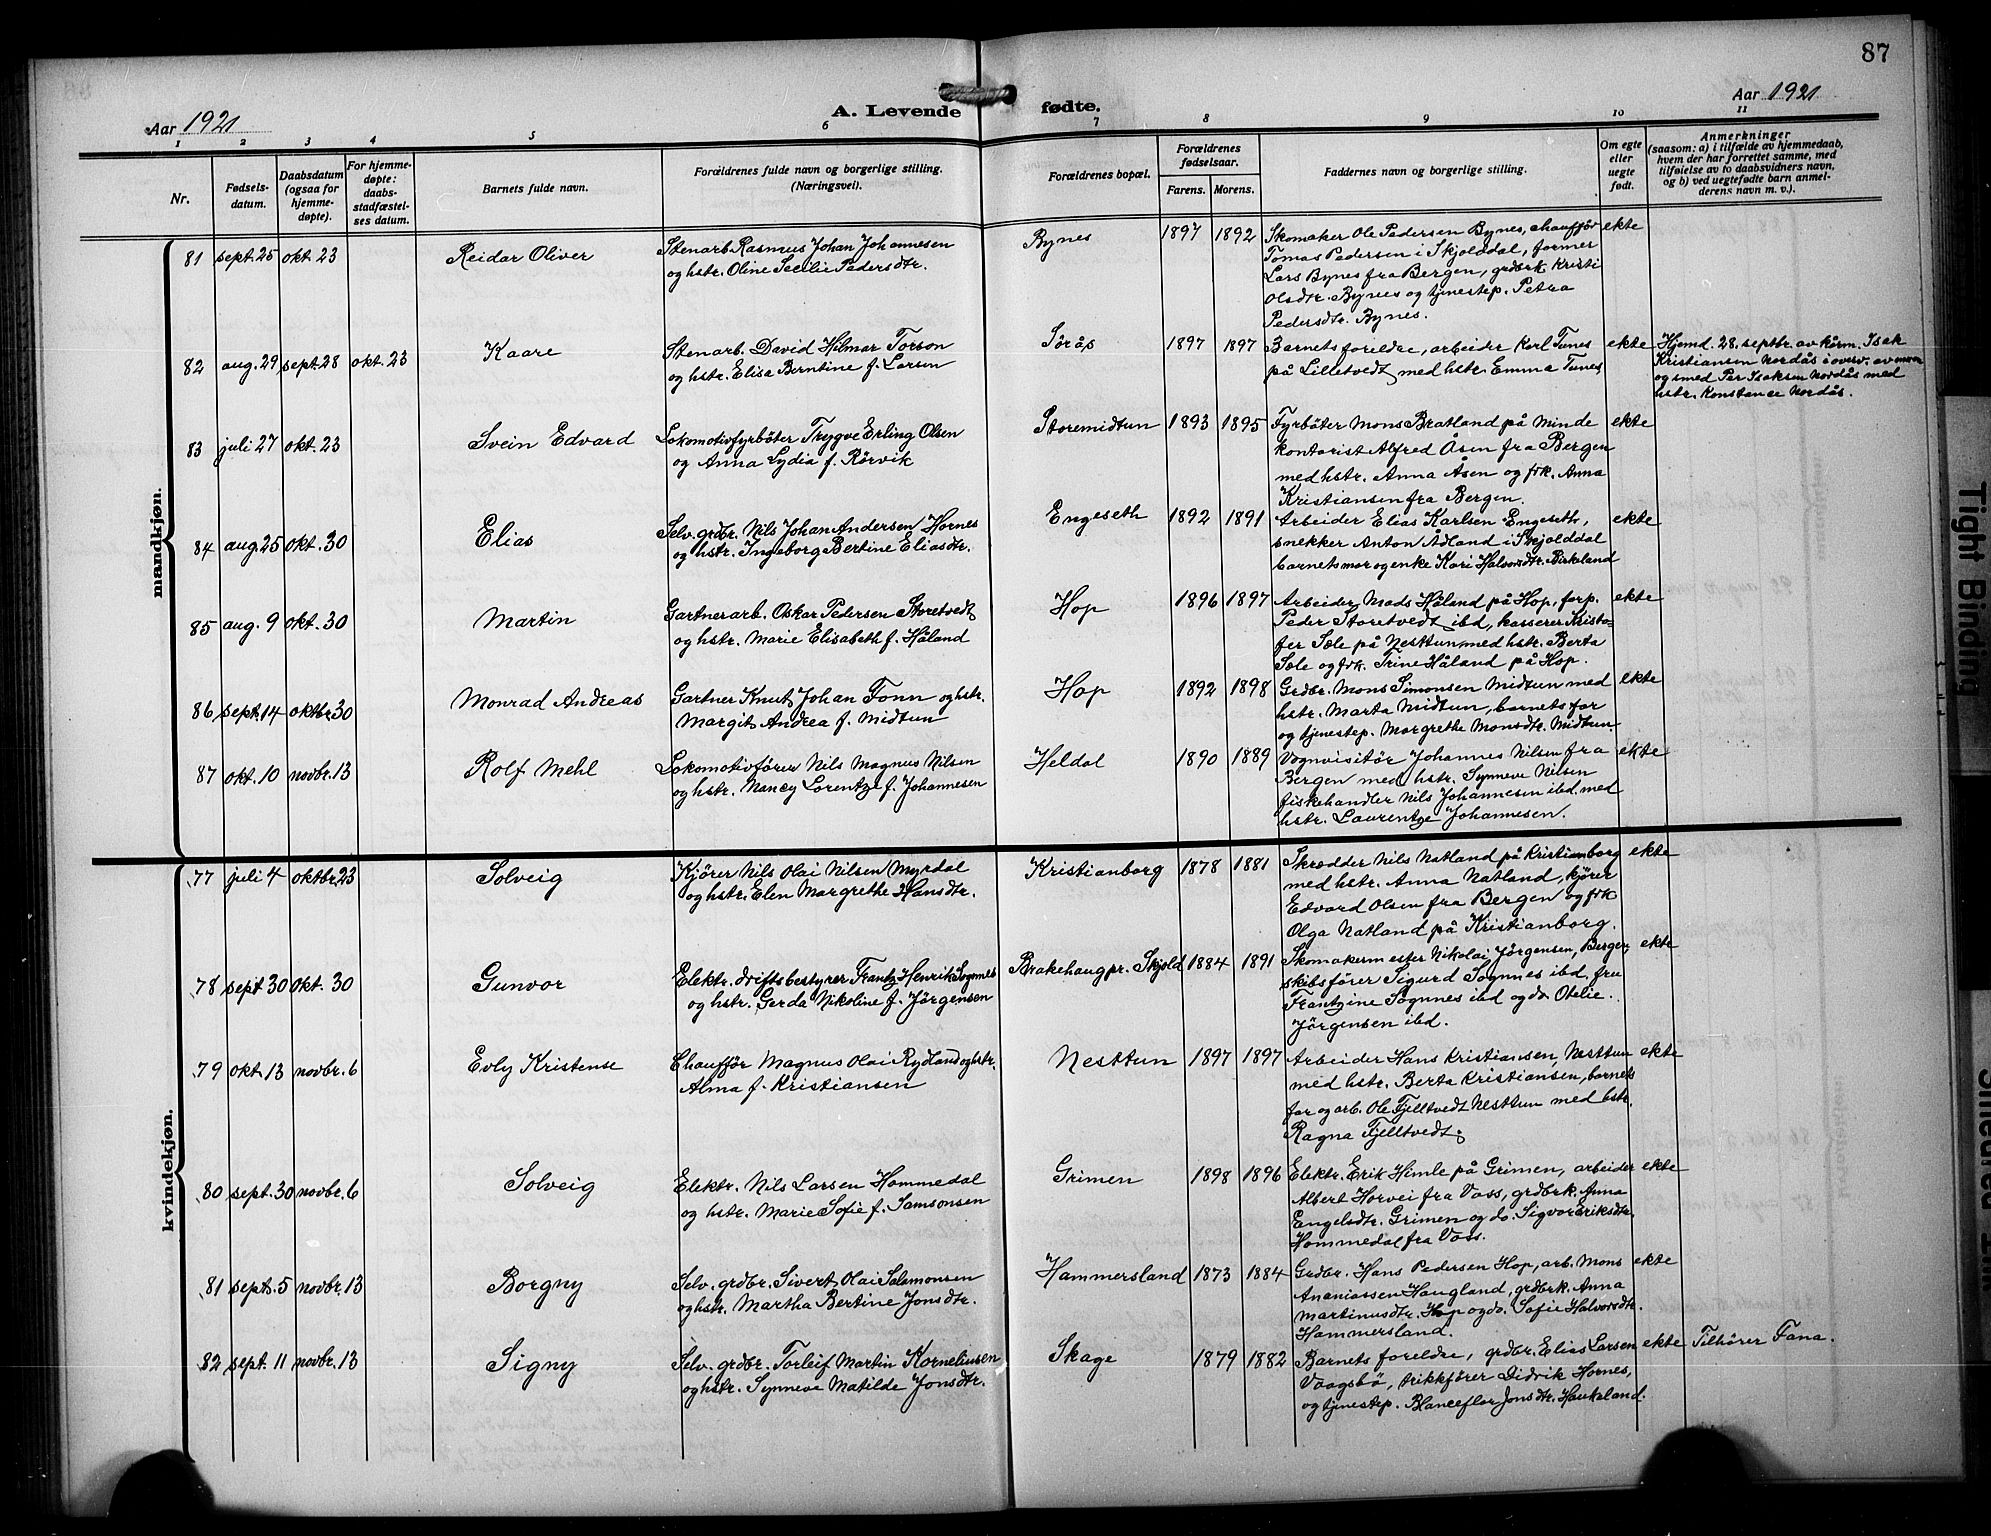 87
Aar 1921
A. Levende fødte.
Aar 1921
1 2 3 4 5 6 7 8 9 10 11
Nr.
Fødsels-
datum.
Daabsdatum
(ogsaa for
hjemme-
døpte).
For hjemme-
døpte:
daabs-
stadfæstel-
ses datum.
Barnets fulde navn.
Forældrenes fulde navn og borgerlige stilling.
(Næringsvei).
Forældrenes bopæl.
Forældrenes
fødselsaar.
Farens. Morens.
Faddernes navn og borgerlige stilling.
Om egte
eller
uegte
født.
Anmerkninger
(saasom: a) i tilfælde av hjemmedaab,
hvem der har forrettet samme, med
tilføielse av to daabsvidners navn,
og b) ved uegtefødte barn anmel-
derens navn m. v.).
mandkjøn.
81 sept. 25 okt. 23 Reidar Oliver
Stenarb. Rasmus Johan Johannesen
og hstr. Oline Secilie Pedersdtr.
Bynes 1897 1892
Skomaker Ole Pedersen Bynes, chaufför
Tomas Pedersen i Skjolddal, former
Lars Bynes fra Bergen, grdbrk. Kristi
Olsdtr. Bynes og tjenestep. Petra
Pedersdtr. Bynes.
ekte
82 aug. 29 sept. 28 okt. 23 Kaare
Stenarb. David Hilmar Torson
og hstr. Elisa Berntine f. Larsen
Sörås 1897 1897
Barnets foreldre, arbeider Karl Tunes
på Lilletvedt med hstr. Emma Tunes
ekte
Hjemd. 28. septbr. av kårm. Isak
Kristiansen Nordås i overv. av moren
og smed Per Isaksen Nordås med
hstr. Konstance Nordås.
83 juli 27 okt. 23 Svein Edvard
Lokomotivfyrböter Trygve Erling Olsen
og Anna Lydia f. Rörvik
Storemidtun 1893 1895
Fyrböter Mons Bratland på Minde
kontorist Alfred Åsen fra Bergen
med hstr. Anna Åsen og frk. Anna
Kristiansen fra Bergen.
ekte
84 aug 25 okt. 30 Elias
Selv. grdbr. Nils Johan Andersen Hornes
og hstr. Ingeborg Bertine Eliasdtr.
Engeseth 1892 1891
Arbeider Elias Karlsen Engeseth,
snekker Anton Ådland i Skjolddal
barnets mor og enke Kari Halvorsdtr. Birkeland
ekte
85 aug. 9 okt. 30 Martin
Gartnerarb. Oskar Pedersen Storetvedt
og hstr. Marie Elisabeth f. Håland
Hop 1896 1897
Arbeider Mads Håland på Hop, forp.
Peder Storetvedt ibd, kasserer Kristo-
fer Sæle på Nesttun, med hstr. Berta
Sæle og frk. Trine Håland på Hop.
ekte
86 sept. 14 oktbr. 30 Monrad Andreas
Gartner Knut Johan Fonn og hstr.
Margit Andrea f. Midtun
Hop 1892 1898
Grdbr. Mons Simonsen Midtun med
hstr. Marta Midtun, barnets far
og tjenestep. Margrethe Monsdtr. Midtun.
ekte
87 okt. 10 novbr. 13 Rolf Mehl
Lokomotivförer Nils Magnus Nilsen
og hstr. Nancy Lorentze f. Johannesen
Heldal 1890 1889
Vognvisitör Johannes Nilsen fra
Bergen med hstr. Synneve Nilsen
fiskehandler Nils Johannesen ibd. med
hstr. Laurentze Johannesen.
ekte
kvindekjøn.
77 juli 4 oktbr. 23 Solveig
Kjörer Nils Olai Nilsen Myrdal
og hstr. Elen Margrethe Hansdtr.
Kristianborg 1878 1881
Skrædder Nils Natland på Kristianborg
med hstr. Anna Natland, kjörer
Edvard Olsen fra Bergen og frk
Olga Natland på Kristianborg.
ekte
78 sept 30 okt. 30 Gunvor
Elektr. driftsbestyrer Frantz Henrik Sognnes
og hstr. Gerda Nikoline f. Jörgensen
Brakehaug pr. Skjold 1884 1891
Skomakermester Nikolai Jörgensen, Bergen,
skibsförer Sigurd Sognnes ibd. fru
Frantzine Sognnes ibd og do. Otelie
Jörgensen ibd.
ekte
79 okt. 13 novbr. 6 Evly Kristense
Chaufför Magnus Olai Rydland og hstr.
Alma f. Kristiansen
Nesttun 1897 1897
Arbeider Hans Kristiansen, Nesttun
med hstr. Berta Kristiansen, barnets
far og arb. Ole Fjelltvedt Nesttun med hstr.
Ragna Fjelltvedt.
ekte
80 sept. 30 novbr. 6 Solveig
Elektr. Nils Larsen Hommedal
og hstr. Marie Sofie f. Samsonsen
Grimen 1898 1896
Elektr. Erik Himle på Grimen, arbeider
Albert Horvei fra Voss, grdbrk. Anna
Engelsdtr. Grimen og do. Sigvor Eriksdtr.
Hommedal fra Voss.
ekte
81 sept. 5 novbr. 13 Borgny
Selv. grdbr. Sivert Olai Salamonsen
og hstr. Martha Bertine Jonsdtr.
Hammersland 1873 1884
Grdbr. Hans Pedersen Hop, arb. Mons
Ananiassen Haugland, grdbrk. Anna
Martinusdtr. Hop og do. Sofie Halvorsdtr.
Hammersland.
ekte
82 sept. 11 novbr. 13 Signy
Selv. grdbr. Torleif Martin Korneliusen
og hstr. Synneve Matilde Jonsdtr.
Skage 1879 1882
Barnets foreldre, grdbr. Elias Larsen
Vaagsbö, trikkförer Didrik Hornes,
og tjenestep. Blanceflor Jonsdtr. Haukeland.
ekte
Tilhörer Fana.
Tight Binding